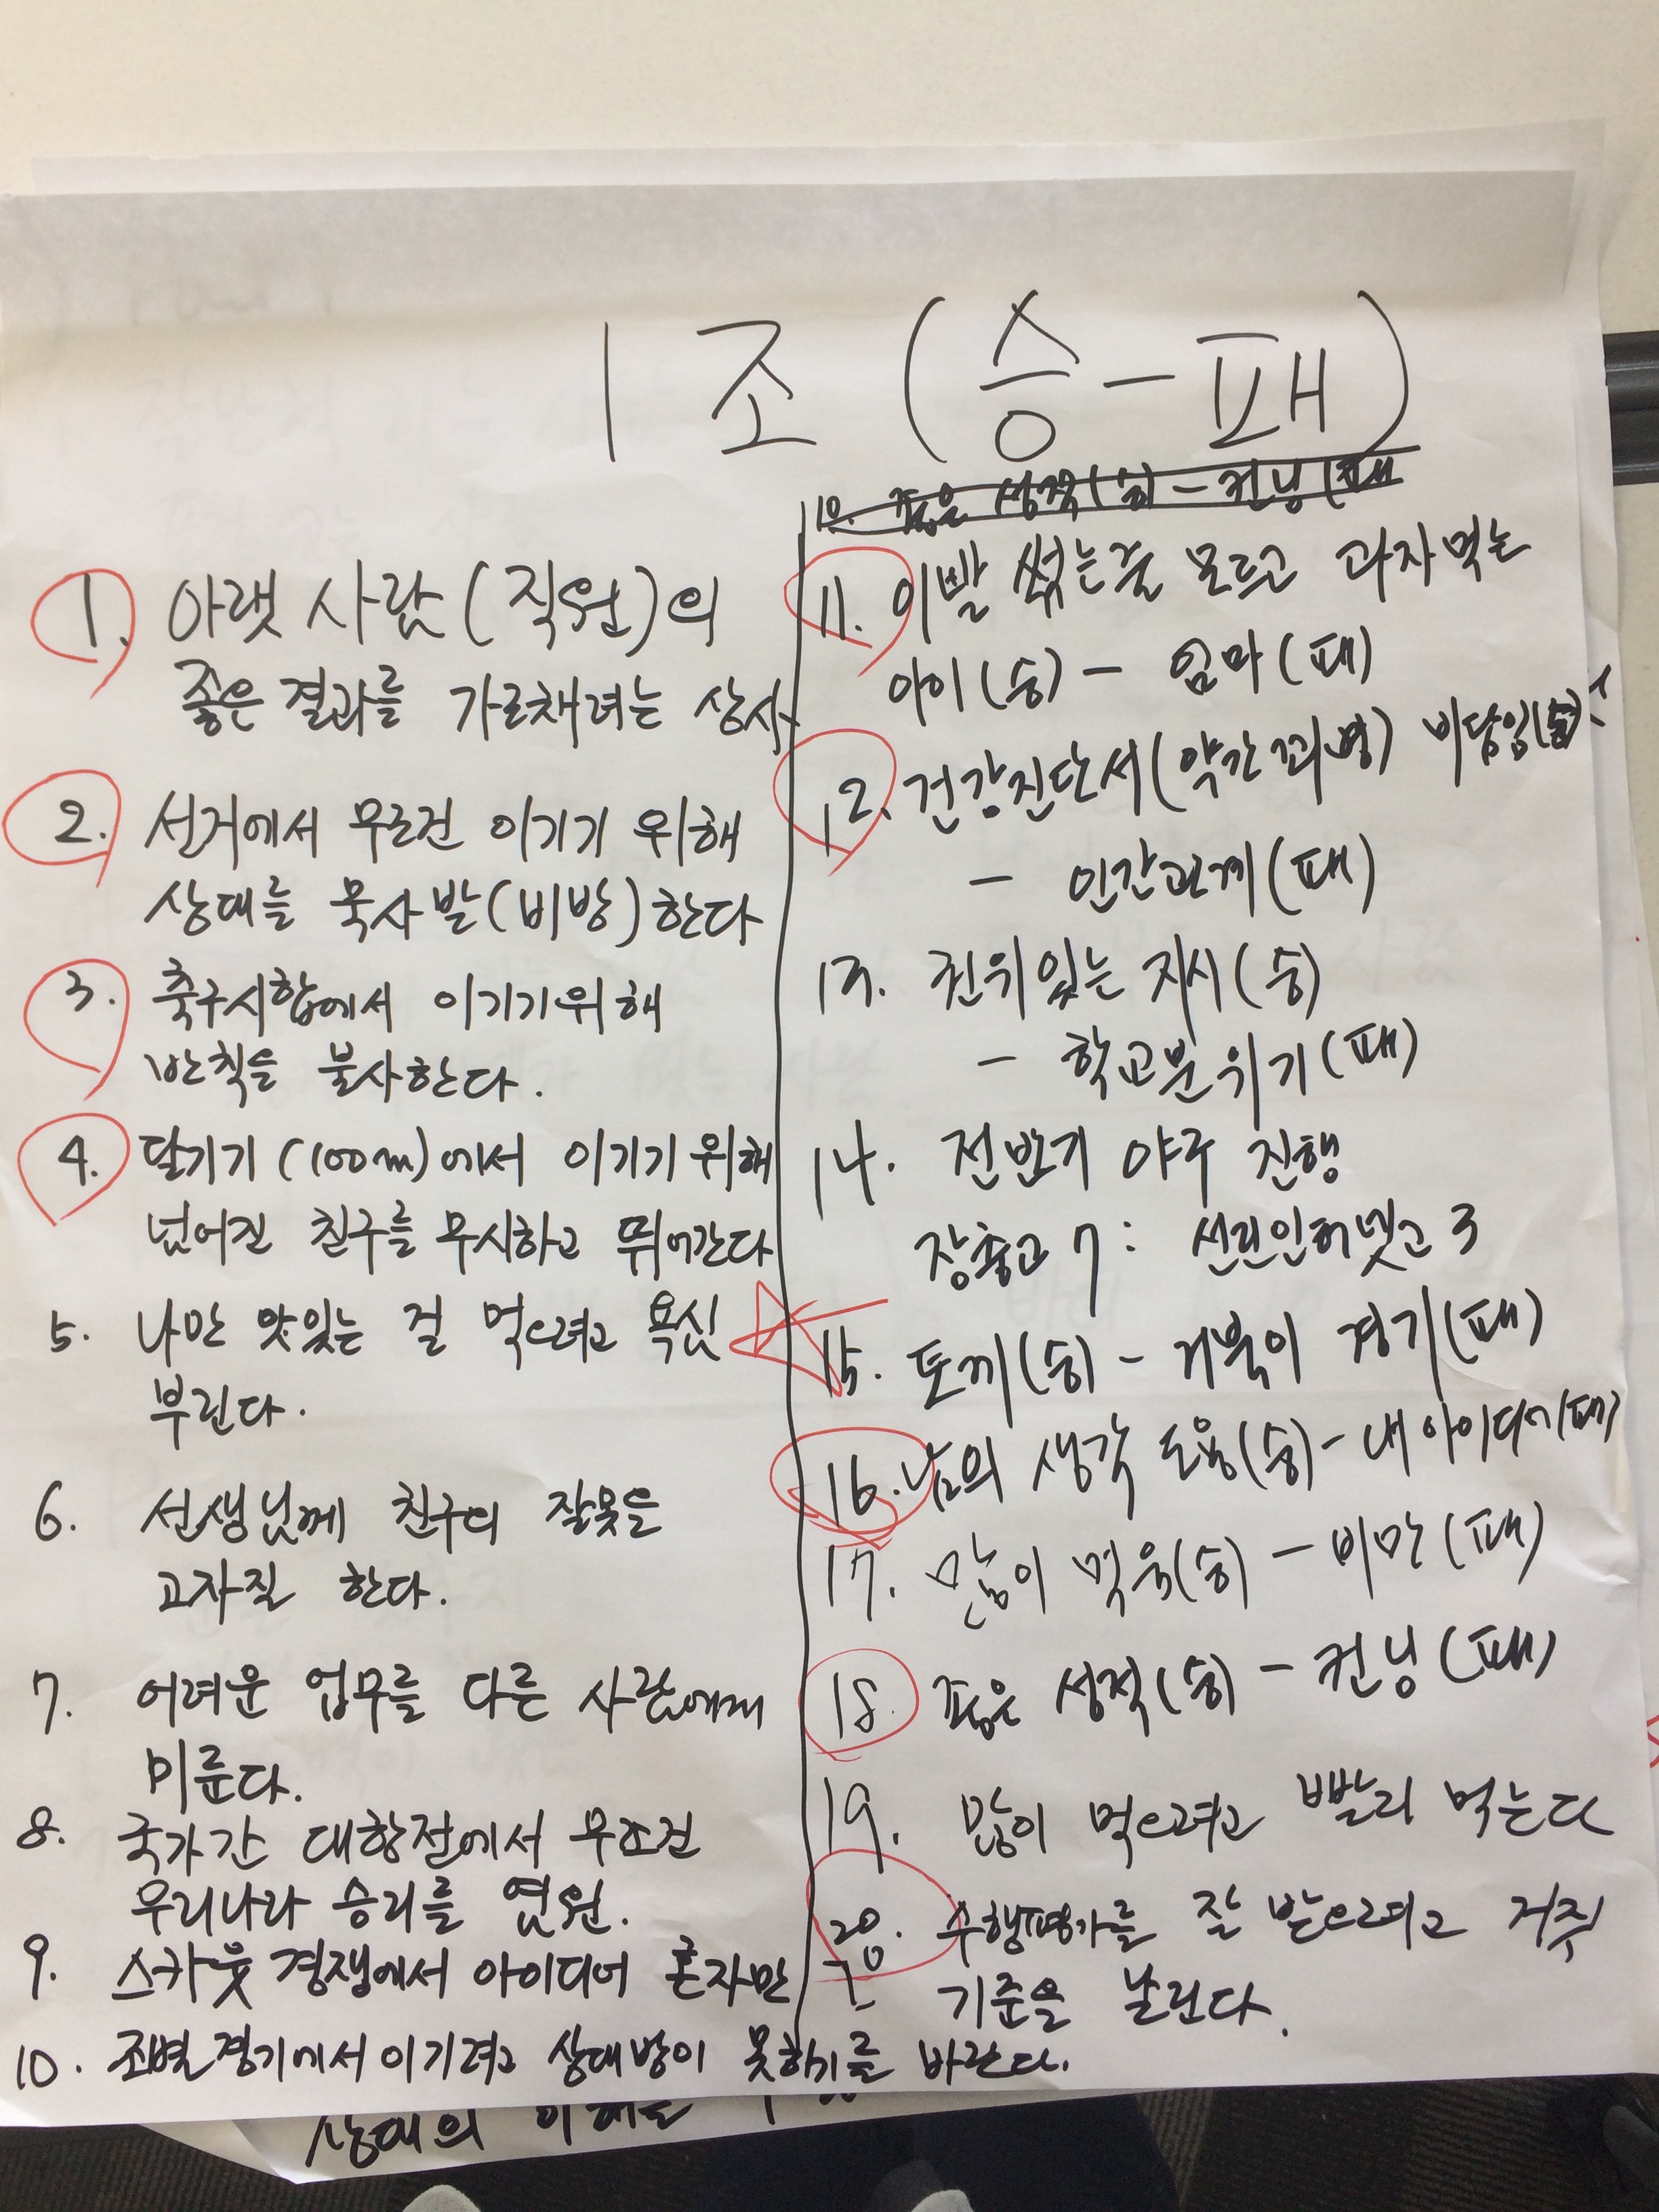 1조 (승-패)
1. 아랫 사람 (직원)의
좋은 결과를 가로채려는 상사
2. 선거에서 무조건 이기기 위해
상대를 묵사발(비방)한다
3. 축구시합에서 이기기위해
반칙을 불사한다.
4. 달기기 (100m)에서 이기기 위해
넘어진 친구를 무시하고 뛰어간다
5. 나만 맛있는 걸 먹으려고 욕심
부린다.
6. 선생님께 친구의 잘못을
고자질 한다.
7. 어려운 업무를 다른 사람에게
미룬다.
8. 국가간 대항전에서 무조건
우리나라 승리를 염원.
9. 스카웃 경쟁에서 아이디어 혼자만
10. 조별 경기에서 이기려고 상대방이 못하기를 바란다.
10. 좋은 성적(승) - 컨닝(패
11. 이발 썪는줄 모르고 과자먹는
아이(승) - 엄마(패)
12. 건강진단서(약간 꾀병) 비담임(승)
- 인간관계(패)
13. 권위있는 지시(승)
- 학교분위기(패)
14. 전반기 야구 진행
장충고 7 : 선린인터넷고 3
15. 토끼(승) - 거북이 경기(패)
16. 남의 생각 도용(승) - 내 아이디어(패)
17. 많이 먹음(승) - 비만(패)
18. 좋은 성적(승) - 컨닝(패)
19. 많이 먹으려고 빨리 먹는다
20. 수행평가를 잘 받으려고
기준을 날린다.
상대의